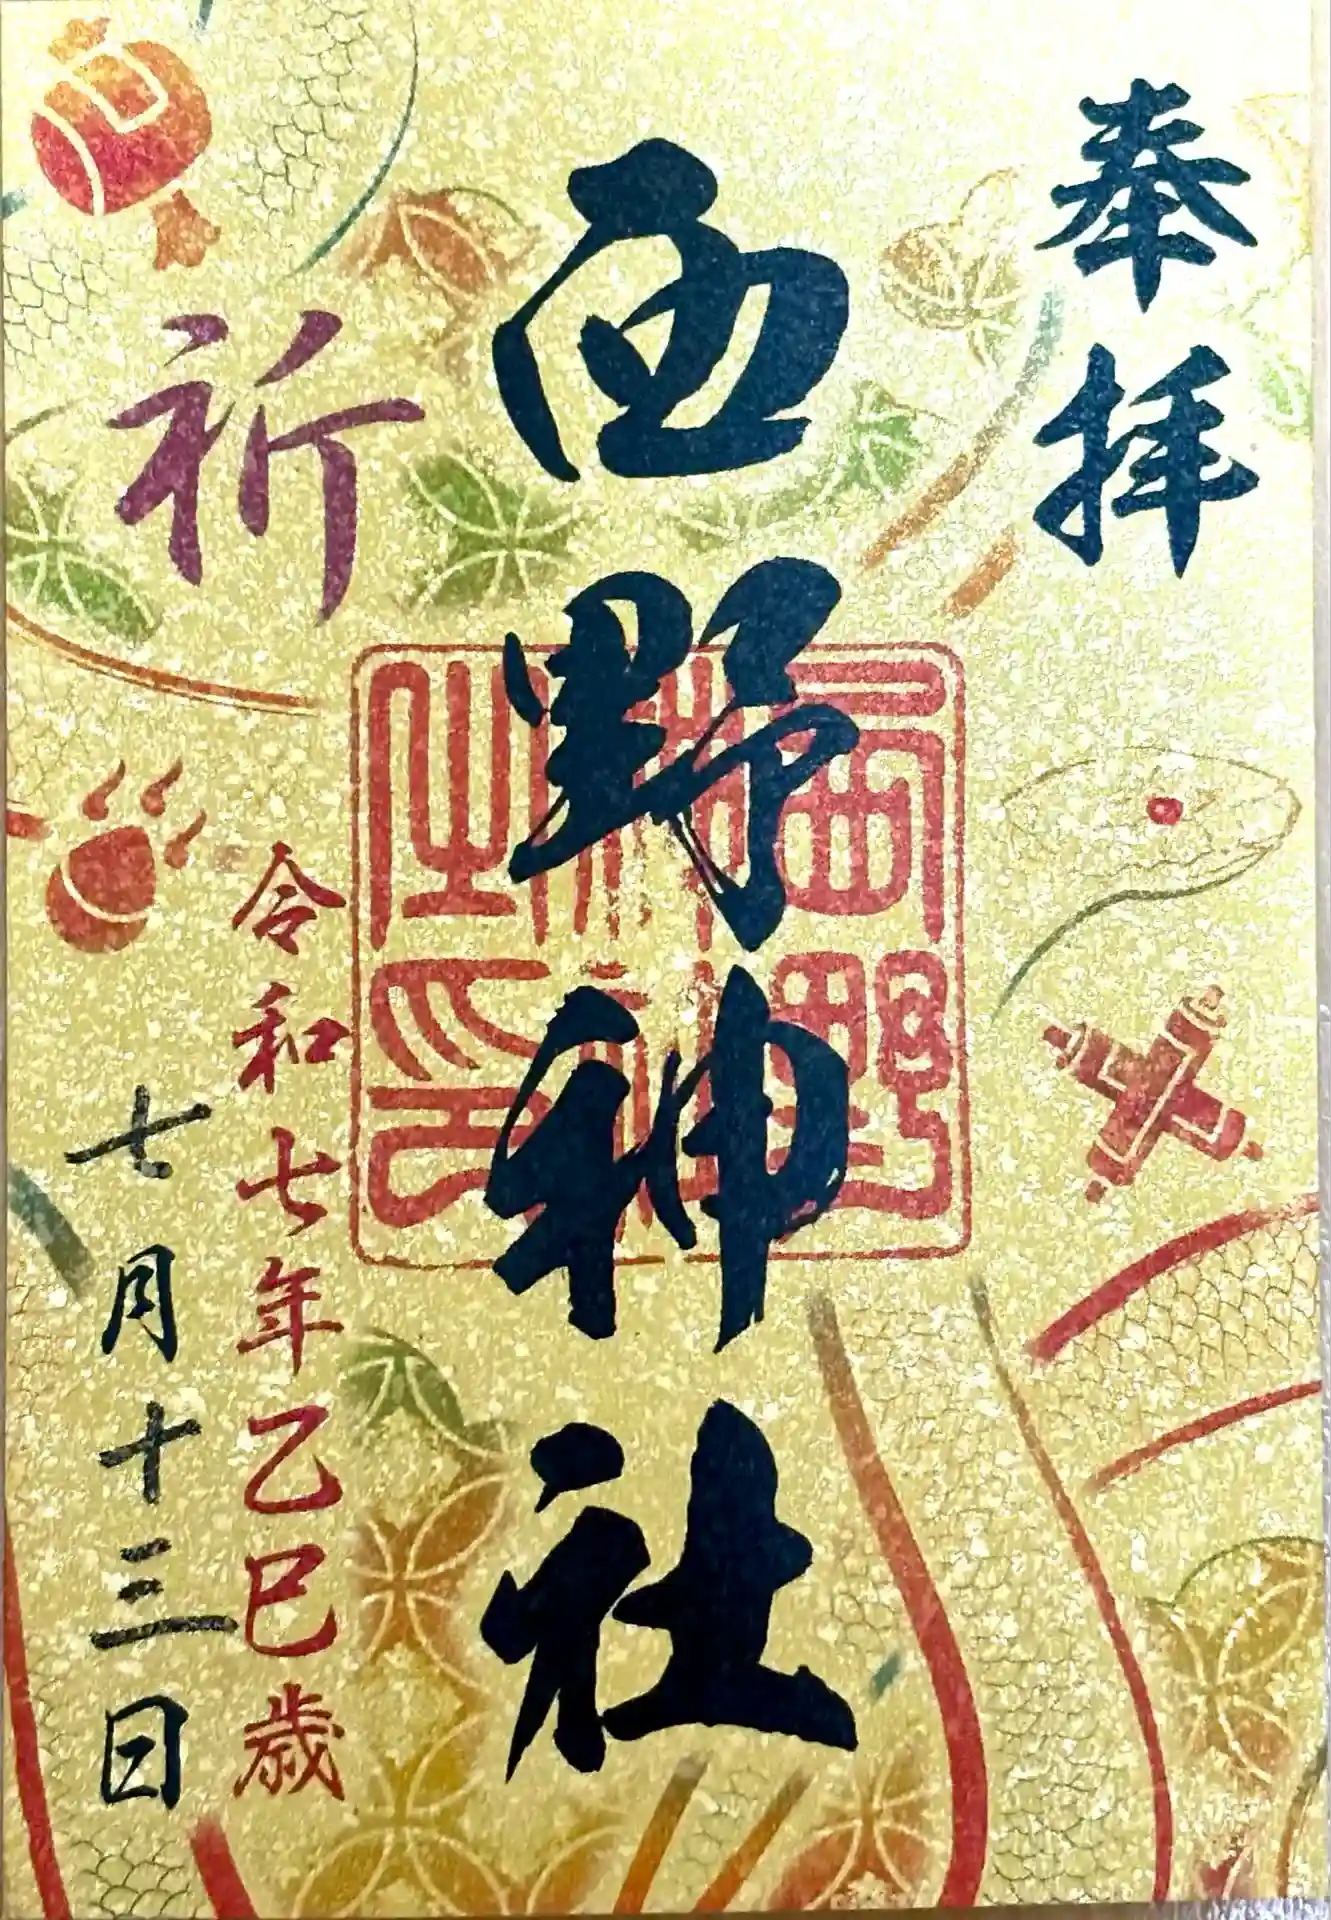 奉拝
西野神社
西野神社之印
祈
令和七年乙巳歳
七月十三日